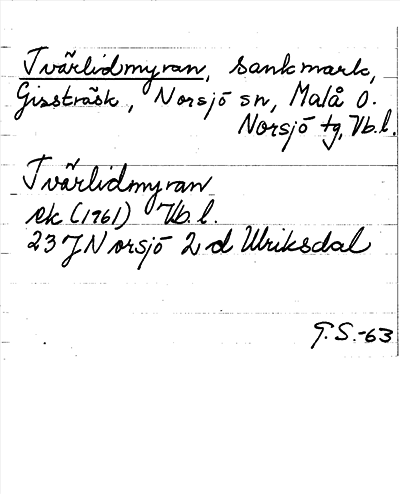 Tvärlidmyran, sankmark,
Gissträsk, Norsjö sn, Malå o.
Norsjö tg, Vb.l.
Tvärlidmyran
ek (1961) Vb.l.
23 J Norsjö 2 d Ulriksdal
G.S.-63